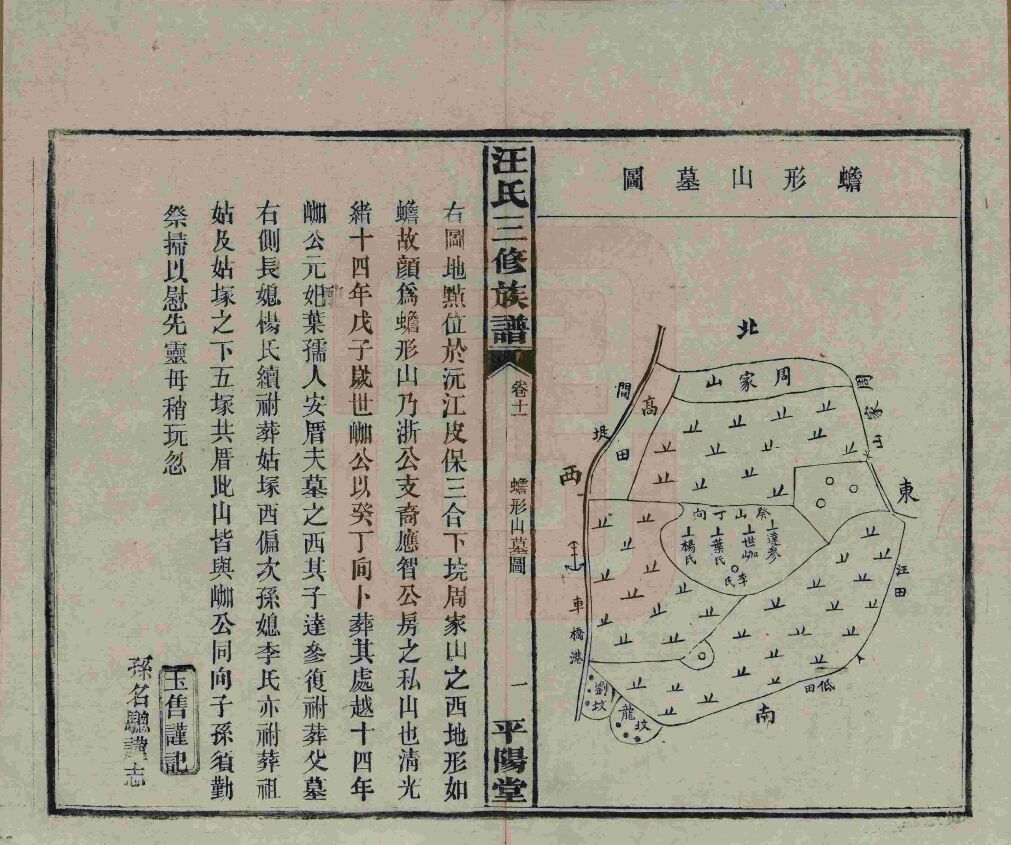 蟾形山墓圖
北
周家山
周家山
東
高
間田垠
西
癸山丁向
達參
世㘭
葉氏
楊氏
李氏
汪田
車橋港
劉坟
龍坟
低田
南
汪氏三修族譜
卷十一
蟾形山墓圖
一
平陽堂
右圖地㸃位於沅江皮保三合下垸周家山之西地形如
蟾故顔爲蟾形山乃浙公支裔應智公房之私山也清光
緒十四年戊子歲世㘭公以癸丁向卜葬其處越十四年
㘭公元妣葉孺人安厝夫墓之西其子達參復祔葬父墓
右側長媳楊氏續祔葬姑塚西偏次孫媳李氏亦祔葬祖
姑及姑塚之下五塚共厝此山皆與㘭公同向子孫須勤
祭掃以慰先靈毋稍玩忽
玉售謹記
孫名驄謹志